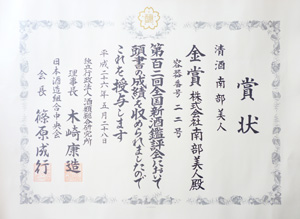 賞状
清酒 南部美人
金賞 株式会社南部美人殿
容器番号 二二号
第百二回全国新酒鑑評会において
頭書の成績を収められましたので
これを授与します
平成二十六年五月二十八日
独立行政法人 酒類総合研究所
理事長 木崎康造
日本酒造組合中央会
会長 篠原成行